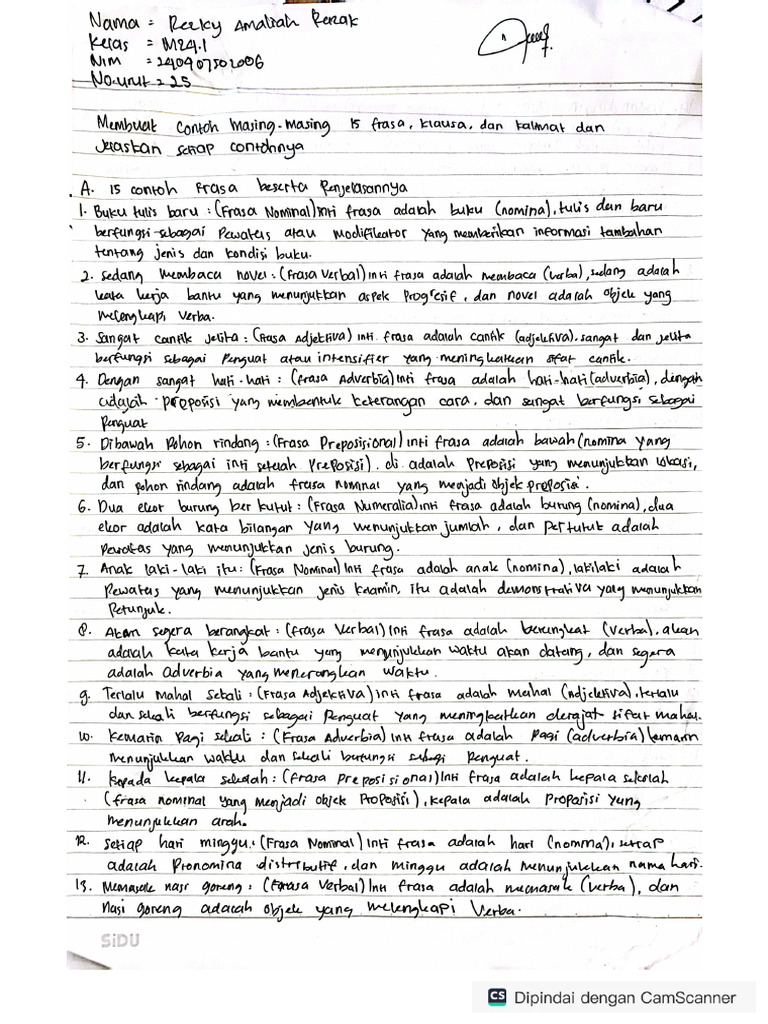 Nama = Rezky Amaliah Renzak
Kelas = M24.1
Nim = 240907502006
No.urut = 25
Membuat contoh masing-masing 15 frasa, klausa, dan kalimat dan
Jelaskan setiap contohnya
A. 15 contoh frasa beserta Penjelasannya
1. Buku tulis baru : (Frasa Nominal) inti frasa adalah buku (nomina), tulis dan baru
berfungsi sebagai Pewatas atau modifikator yang memberikan informasi tambahan
tentang jenis dan kondisi buku.
2. Sedang membaca novel : (Frasa Verbal) inti frasa adalah membaca (verba), sedang adalah
kata kerja bantu yang menunjukkan aspek progresif, dan novel adalah objek yang
melengkapi verba.
3. Sangat cantik jelita : (frasa Adjektiva) inti frasa adalah cantik (adjektiva). sangat dan jelita
berfungsi sebagai Penguat atau intensifier yang meningkatkan sifat cantik.
4. Dengan sangat hati-hati : (frasa Adverbia) inti frasa adalah hati-hati (adverbia), dengan
adalah preposisi yang membentuk keterangan cara, dan sangat berfungsi sebagai
Penguat
5. Dibawah Pohon rindang : (Frasa Preposisional) inti frasa adalah bawah (nomina yang
berfungsi sebagai inti setelah Preposisi). di adalah Preposisi yang menunjukkan lokasi,
dan pohon rindang adalah frasa nominal yang menjadi objek preposisi.
6. Dua ekor burung ber kutut : (Frasa Numeralia) inti frasa adalah burung (nomina), dua
ekor adalah kata bilangan yang menunjukkan jumlah, dan pertutut adalah
Pewatas yang menunjukkan jenis burung.
7. Anak laki-laki itu : (Frasa Nominal) inti frasa adalah anak (nomina), lakilaki adalah
Pewatas yang menunjukkan jenis kelamin, itu adalah demonstrativa yang menunjukkan
Petunjuk.
8. Akan segera berangkat : (frasa Verbal) inti frasa adalah berangkat (verba), akan
adalah kata kerja bantu yang menunjukkan waktu akan datang, dan segera
adalah adverbia yang menerangkan waktu.
9. Terlalu Mahal Sekali : (Frasa Adjektiva) inti frasa adalah mahal (adjektiva), terlalu
dan sekali berfungsi sebagai Penguat yang meningkatkan derajat sifat mahal.
10. Kemarin Pagi sekali : (Frasa Adverbia) inti frasa adalah Pagi (adverbia) kemarin
menunjukkan waktu dan sekali berfungsi sebagai Penguat.
11. Kepada kepala sekolah : (frasa preposisional) inti frasa adalah kepala sekolah
(frasa nominal yang menjadi objek Proposisi), kepala adalah Proposisi yang
menunjukkan arah.
12. Setiap hari minggu : (Frasa Nominal) inti frasa adalah hari (nomina), setiap
adalah Pronomina distributif, dan minggu adalah menunjukkan nama hari.
13. Memasak nasi goreng : (Frasa Verbal) inti frasa adalah memasak (verba), dan
Nasi goreng adalah objek yang melengkapi Verba.
SiDU
CS Dipindai dengan CamScanner